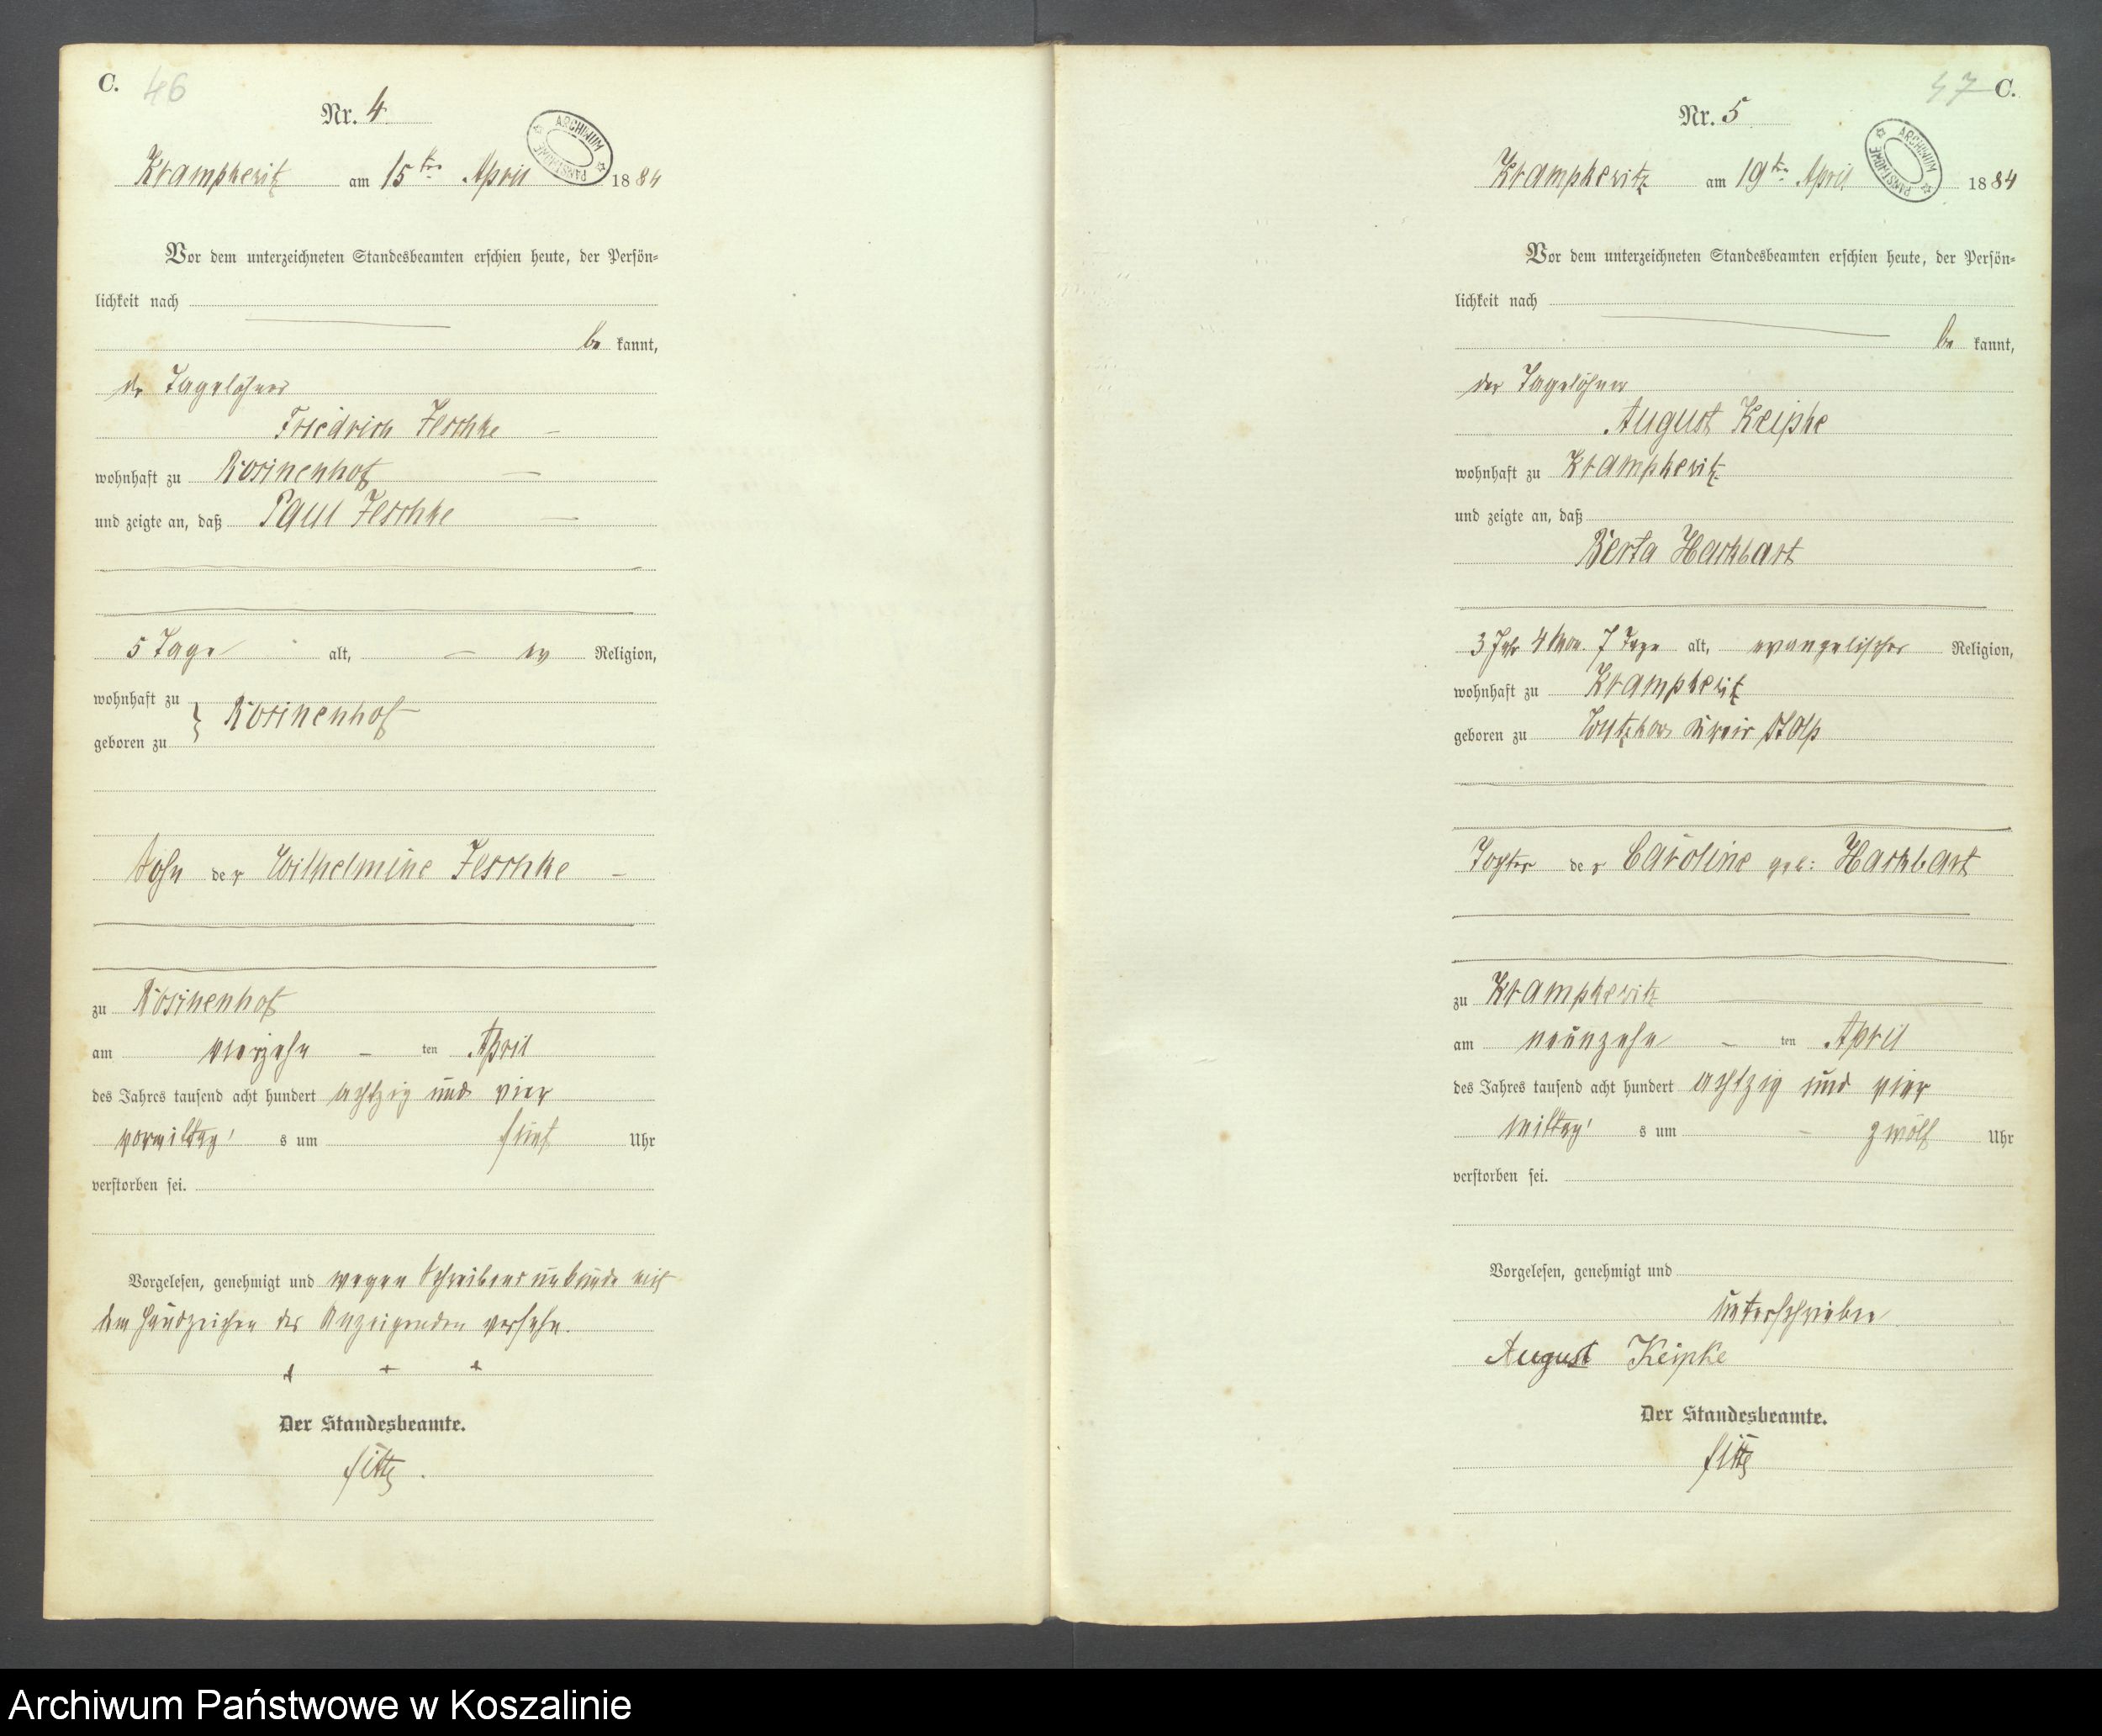 C. 46
Nr. 4
ARCHIWUM PAŃSTWOWE
Krampkewitz am 15ten April 1884
Vor dem unterzeichneten Standesbeamten erschien heute, der Persön-
lichkeit nach
be kannt,
der Tagelöhner
Friedrich Jeschke
wohnhaft zu Rosinenhof
und zeigte an, daß Paul Jeschke
5 Tage alt, ev Religion,
wohnhaft zu
Rosinenhof
geboren zu
Sohn der Wilhelmine Jeschke
zu Rosinenhof
am vierzehn ten April
des Jahres tausend acht hundert achtzig und vier
vormittag's um fünf Uhr
verstorben sei.
Vorgelesen, genehmigt und wegen Schreibens unkunde mit
dem Handzeichen des Anzeigenden versehn.
+ + +
Der Standesbeamte.
47 C.
Nr. 5
ARCHIWUM PAŃSTWOWE
Krampkewitz am 19ten April 1884
Vor dem unterzeichneten Standesbeamten erschien heute, der Persön-
lichkeit nach
be kannt,
der Tagelöhner
August Keipke
wohnhaft zu Krampkewitz
und zeigte an, daß
Berta Hackbart
3 Jahr 4 Mon. 7 Tage alt, evangelischer Religion,
wohnhaft zu Krampkewitz
geboren zu Kreis Stolp
Tochter der Caroline geb: Hackbart
zu Krampkewitz
am neunzehn ten April
des Jahres tausend acht hundert achtzig und vier
mittag's um zwölf Uhr
verstorben sei.
Vorgelesen, genehmigt und
unterschrieben
August Keipke
Der Standesbeamte.
Archiwum Państwowe w Koszalinie